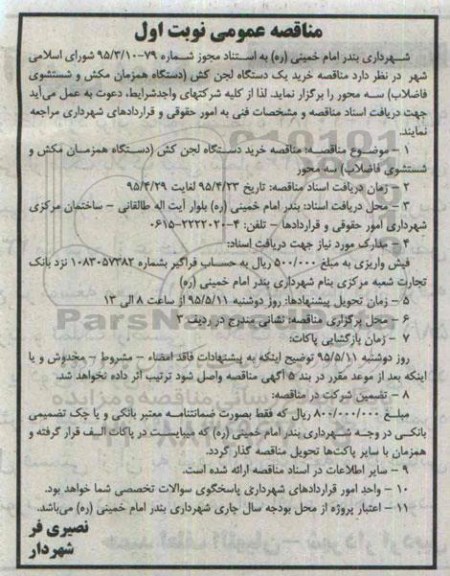 مناقصه عمومی نوبت اول
شهرداری بندر امام خمینی (ره) به استناد مجوز شماره ۷۹–۹۵/۳/۱۰ شورای اسلامی
شهر در نظر دارد مناقصه خرید یک دستگاه لجن کش (دستگاه همزمان مکش و شستشوی
فاضلاب) سه محور را برگزار نماید. لذا از کلیه شرکتهای واجدشرایط، دعوت به عمل می‌آید
جهت دریافت اسناد مناقصه و مشخصات فنی به امور حقوقی و قراردادهای شهرداری مراجعه
نمایند.
۱ – موضوع مناقصه: مناقصه خرید دستگاه لجن کش (دستگاه همزمان مکش و
شستشوی فاضلاب) سه محور
۲ – زمان دریافت اسناد مناقصه: تاریخ ۹۵/۴/۲۳ لغایت ۹۵/۴/۲۹
۳ – محل دریافت اسناد: بندر امام خمینی (ره) بلوار آیت اله طالقانی – ساختمان مرکزی
شهرداری امور حقوقی و قراردادها – تلفن: ۴–۲۲۲۲۰۲۰–۰۶۱۵
۴ – مدارک مورد نیاز جهت دریافت اسناد:
فیش واریزی به مبلغ ۵۰۰/۰۰۰ ریال به حساب فراگیر بشماره ۱۰۸۳۰۵۷۳۸۲ نزد بانک
تجارت شعبه مرکزی بنام شهرداری بندر امام خمینی (ره)
۵ – زمان تحویل پیشنهادها: روز دوشنبه ۹۵/۵/۱۱ از ساعت ۸ الی ۱۳
۶ – محل برگزاری مناقصه: نشانی مندرج در ردیف ۳
۷ – زمان بازگشایی پاکات:
روز دوشنبه ۹۵/۵/۱۱ توضیح اینکه به پیشنهادات فاقد امضاء – مشروط – مخدوش و یا
اینکه بعد از موعد مقرر در بند ۵ آگهی مناقصه واصل شود ترتیب اثر داده نخواهد شد.
۸ – تضمین شرکت در مناقصه:
مبلغ ۸۰۰/۰۰۰/۰۰۰ ریال که فقط بصورت ضمانتنامه معتبر بانکی و یا چک تضمینی
بانکی در وجه شهرداری بندر امام خمینی (ره) که میبایست در پاکات الف قرار گرفته و
همزمان با سایر پاکت‌ها تحویل مناقصه گذار گردد.
۹ – سایر اطلاعات در اسناد مناقصه ارائه شده است.
۱۰ – واحد امور قراردادهای شهرداری پاسخگوی سوالات تخصصی شما خواهد بود.
۱۱ – اعتبار پروژه از محل بودجه سال جاری شهرداری بندر امام خمینی (ره) می‌باشد.
نصیری فر
شهردار
ParsNamadData